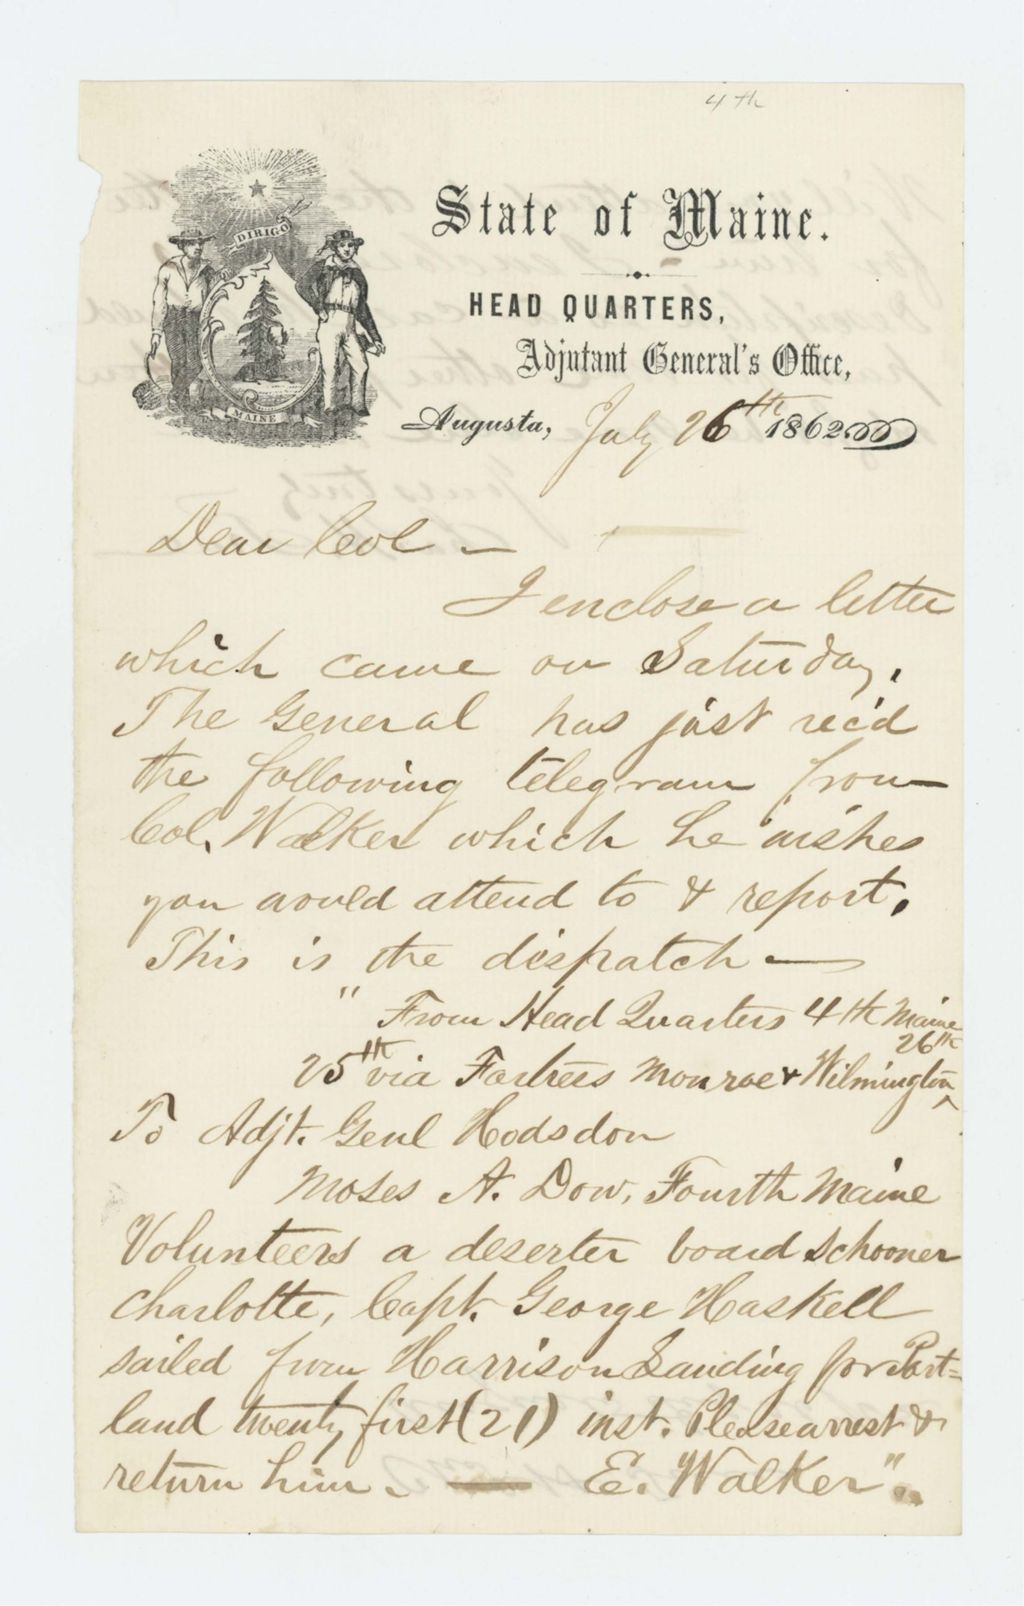 4th
DIRIGO
MAINE
State of Maine.
HEAD QUARTERS,
Adjutant General's Office,
Augusta, July 26th 1862
Dear Col -
I enclose a letter
which came on Saturday.
The General has just rec'd
the following telegram from
Col. Walker which he wishes
you would attend to & report.
This is the dispatch —
" From Head Quarters 4th Maine
26th
25th via Fortress Monroe & Wilmington ^
To Adjt. Genl Hodsdon
Moses A. Dow, Fourth Maine
Volunteers a deserter board schooner
Charlotte, Capt. George Haskell
sailed from Harrison Landing for Port=
land twenty first (21) inst. Please arrest &
return him. — E. Walker".